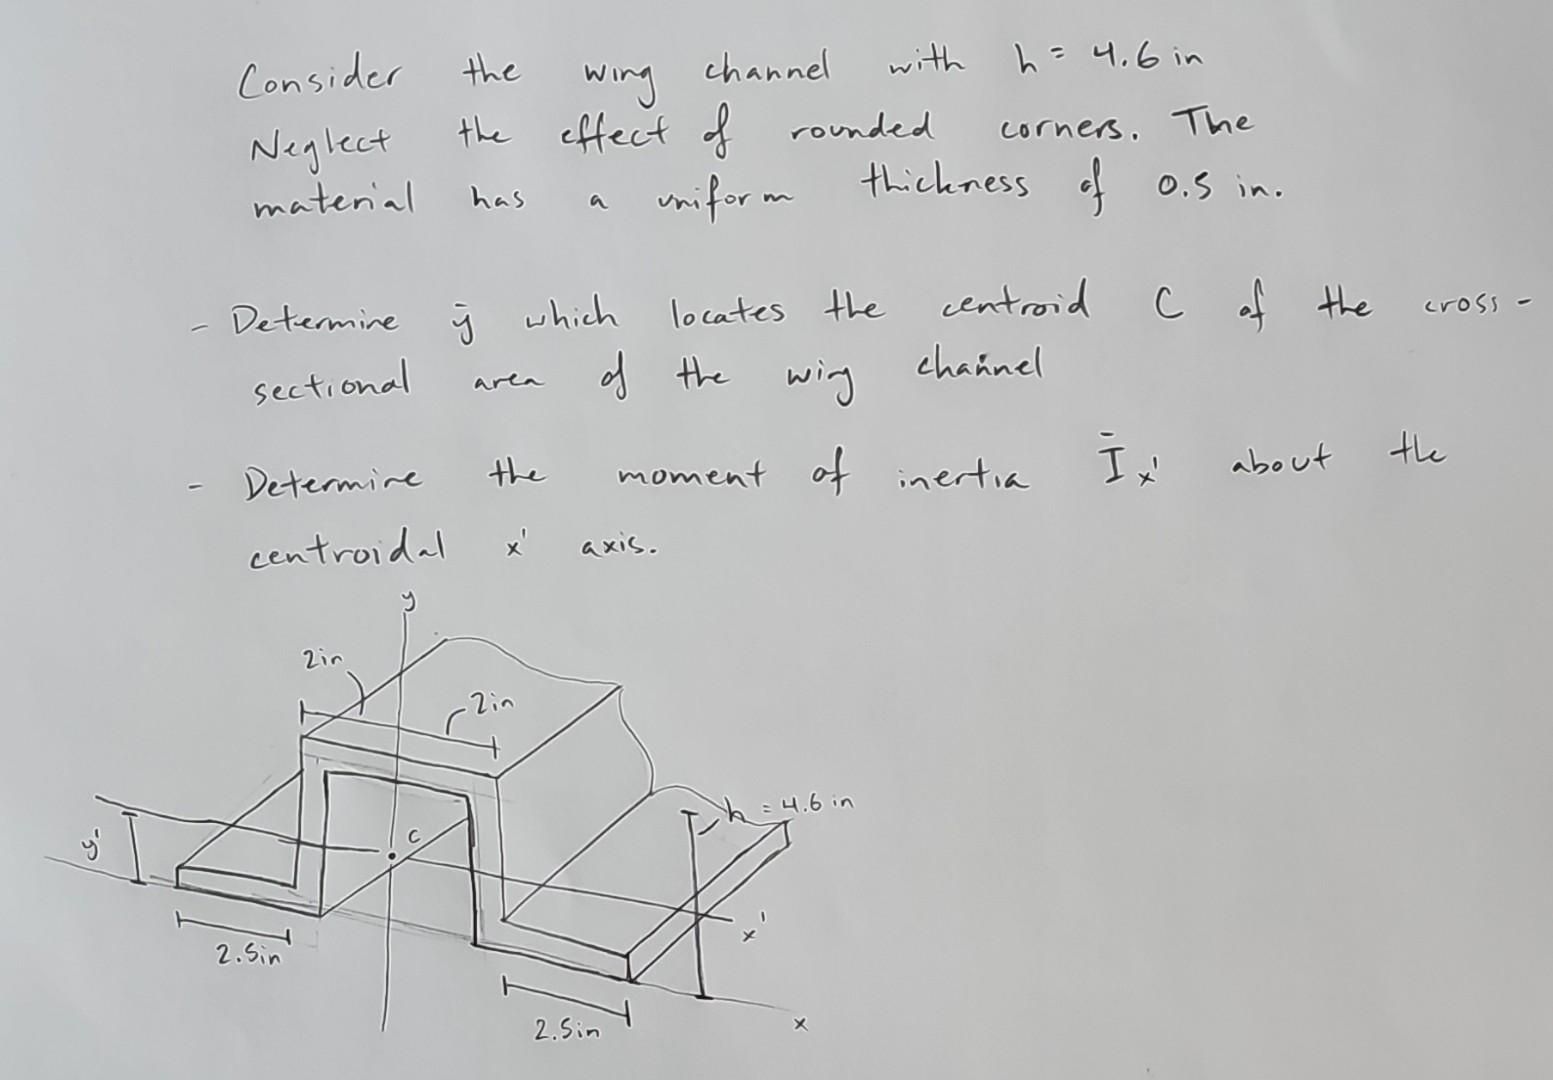 Consider the wing channel with h = 4.6 in
Neglect the effect of rounded corners. The
material has a uniform thickness of 0.5 in.
- Determine ȳ which locates the centroid C of the cross-
sectional area of the wing channel
- Determine the moment of inertia Īx' about the
centroidal x' axis.
y
2in
2in
h = 4.6 in
y'
C
x'
2.5in
2.5in
x